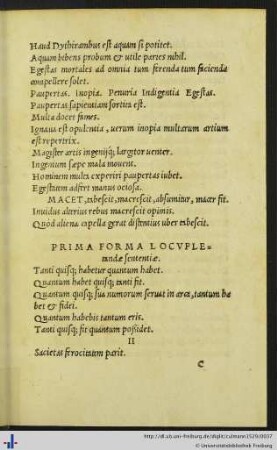 Haud Dythirambus est aquam si potitet.
Aquam bibens probum & utile paries nihil.
Egestas mortales ad omnia tum ferenda tum facienda
compellere solet.
Paupertas. Inopia. Penuria Indigentia Egestas.
Paupertas sapientiam sortita est.
Multa docet fames.
Ignaua est opulentia, uerum inopia multarum artium
est repertrix.
Magister artis ingenijq; largitor uenter.
Ingenium sæpe mala mouent.
Hominem multa experiri paupertas iubet.
Egestatem adfert manus ociosa.
MACET, tabescit, macrescit, absumitur, macer fit.
Inuidus alterius rebus macrescit opimis.
Quòd aliena capella gerat distentius uber tabescit.
PRIMA FORMA LOCVPLE=
tandæ sententiæ.
Tanti quisq; habetur quantum habet.
Quantum habet quisq; tanti fit.
Quantum quisq; sua numorum seruat in arca, tantum ha
bet & fidei.
Quantum habebis tantum eris.
Tanti quisq; fit quantum possidet.
II
Sacietas ferociam parit.
C
http://dl.ub.uni-freiburg.de/diglit/culmann1529/0037
© Universitätsbibliothek Freiburg